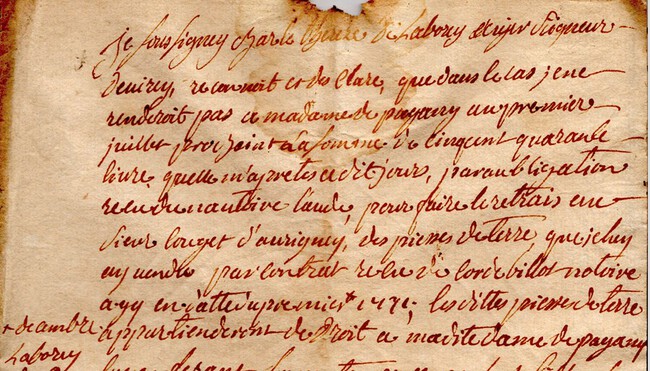 Je soussigney Charle de Laborey ecuyer Seigneur
de virey, reconnoit et des Clare, que dans le cas, je ne
renderoit pas a madame de pagany au premier
juillet prochaint La somme de cinqcent quarante
livre quelle m'a pretes cedit jours, par aubligation
recu de notoire laude, pour faire le retrais au
sieur couget d'aurigney, des pieces de terre, que je luy
ay vendu par contrat recu de billot notoire
a gy en datte du premier les dittes pieces de terre
appartienderont de Droit a madite dame de pagany
Laborey